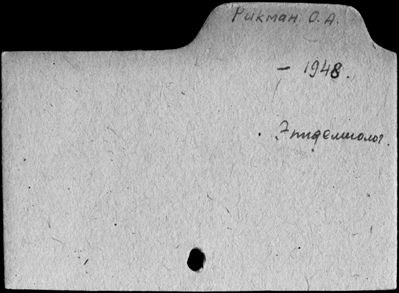 Рикман О. А.
– 1948.
Эпидемиолог.